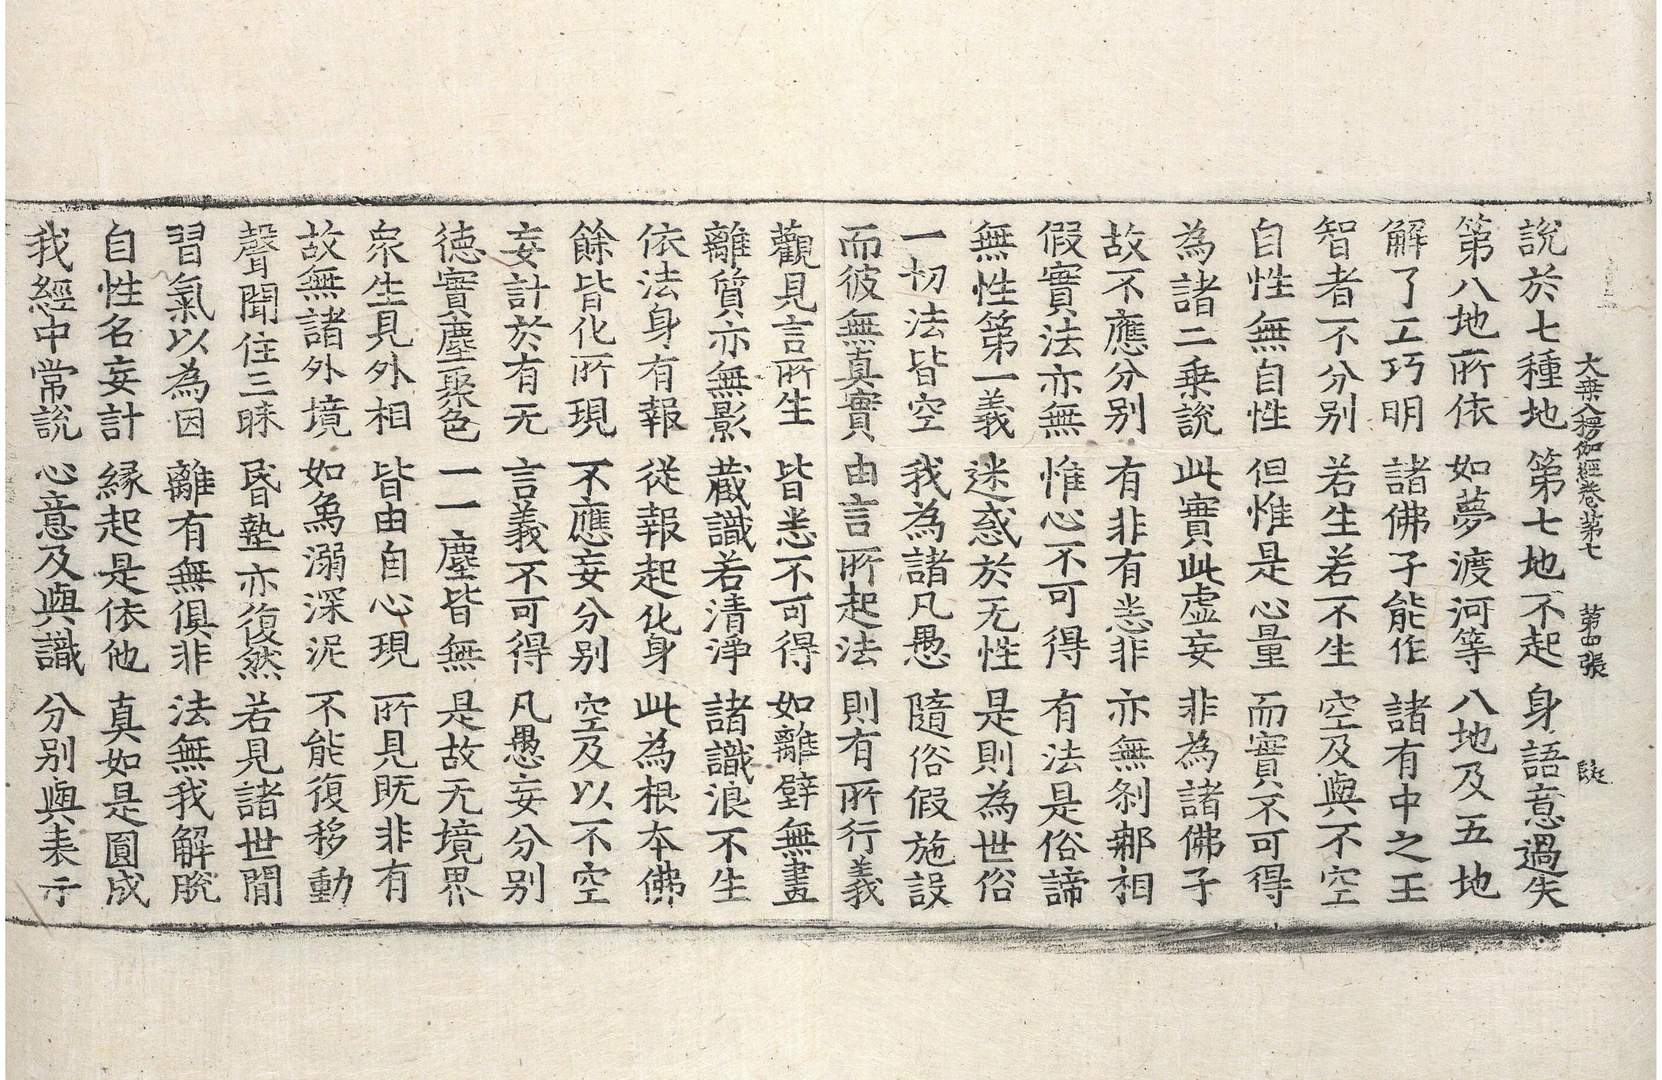 大乗入楞伽經卷第七　第四張
說於七種地　第七地不起　身語意過失
第八地所依　如夢渡河等　八地及五地
解了工巧明　諸佛子能作　諸有中之王
智者不分别　若生若不生　空及與不空
自性無自性　但惟是心量　而實不可得
為諸二乗說　此實此虚妄　非為諸佛子
故不應分别　有非有悉非　亦無刹那相
假實法亦無　惟心不可得　有法是俗諦
無性第一義　迷惑於无性　是則為世俗
一切法皆空　我為諸凡愚　隨俗假施設
而彼無真實　由言所起法　則有所行義
觀見言所生　皆悉不可得　如離壁無畫
離質亦無影　蔵識若清淨　諸識浪不生
依法身有報　從報起化身　此為根本佛
餘皆化所現　不應妄分别　空及以不空
妄計於有无　言義不可得　凡愚妄分别
德實塵聚色　一一塵皆無　是故无境界
衆生見外相　皆由自心現　所見既非有
故無諸外境　如象溺深泥　不能復移動
聲聞住三昧　昏墊亦復然　若見諸世間
習氣以為因　離有無俱非　法無我解脫
自性名妄計　緣起是依他　真如是圓成
我經中常說　心意及與識　分别與表示